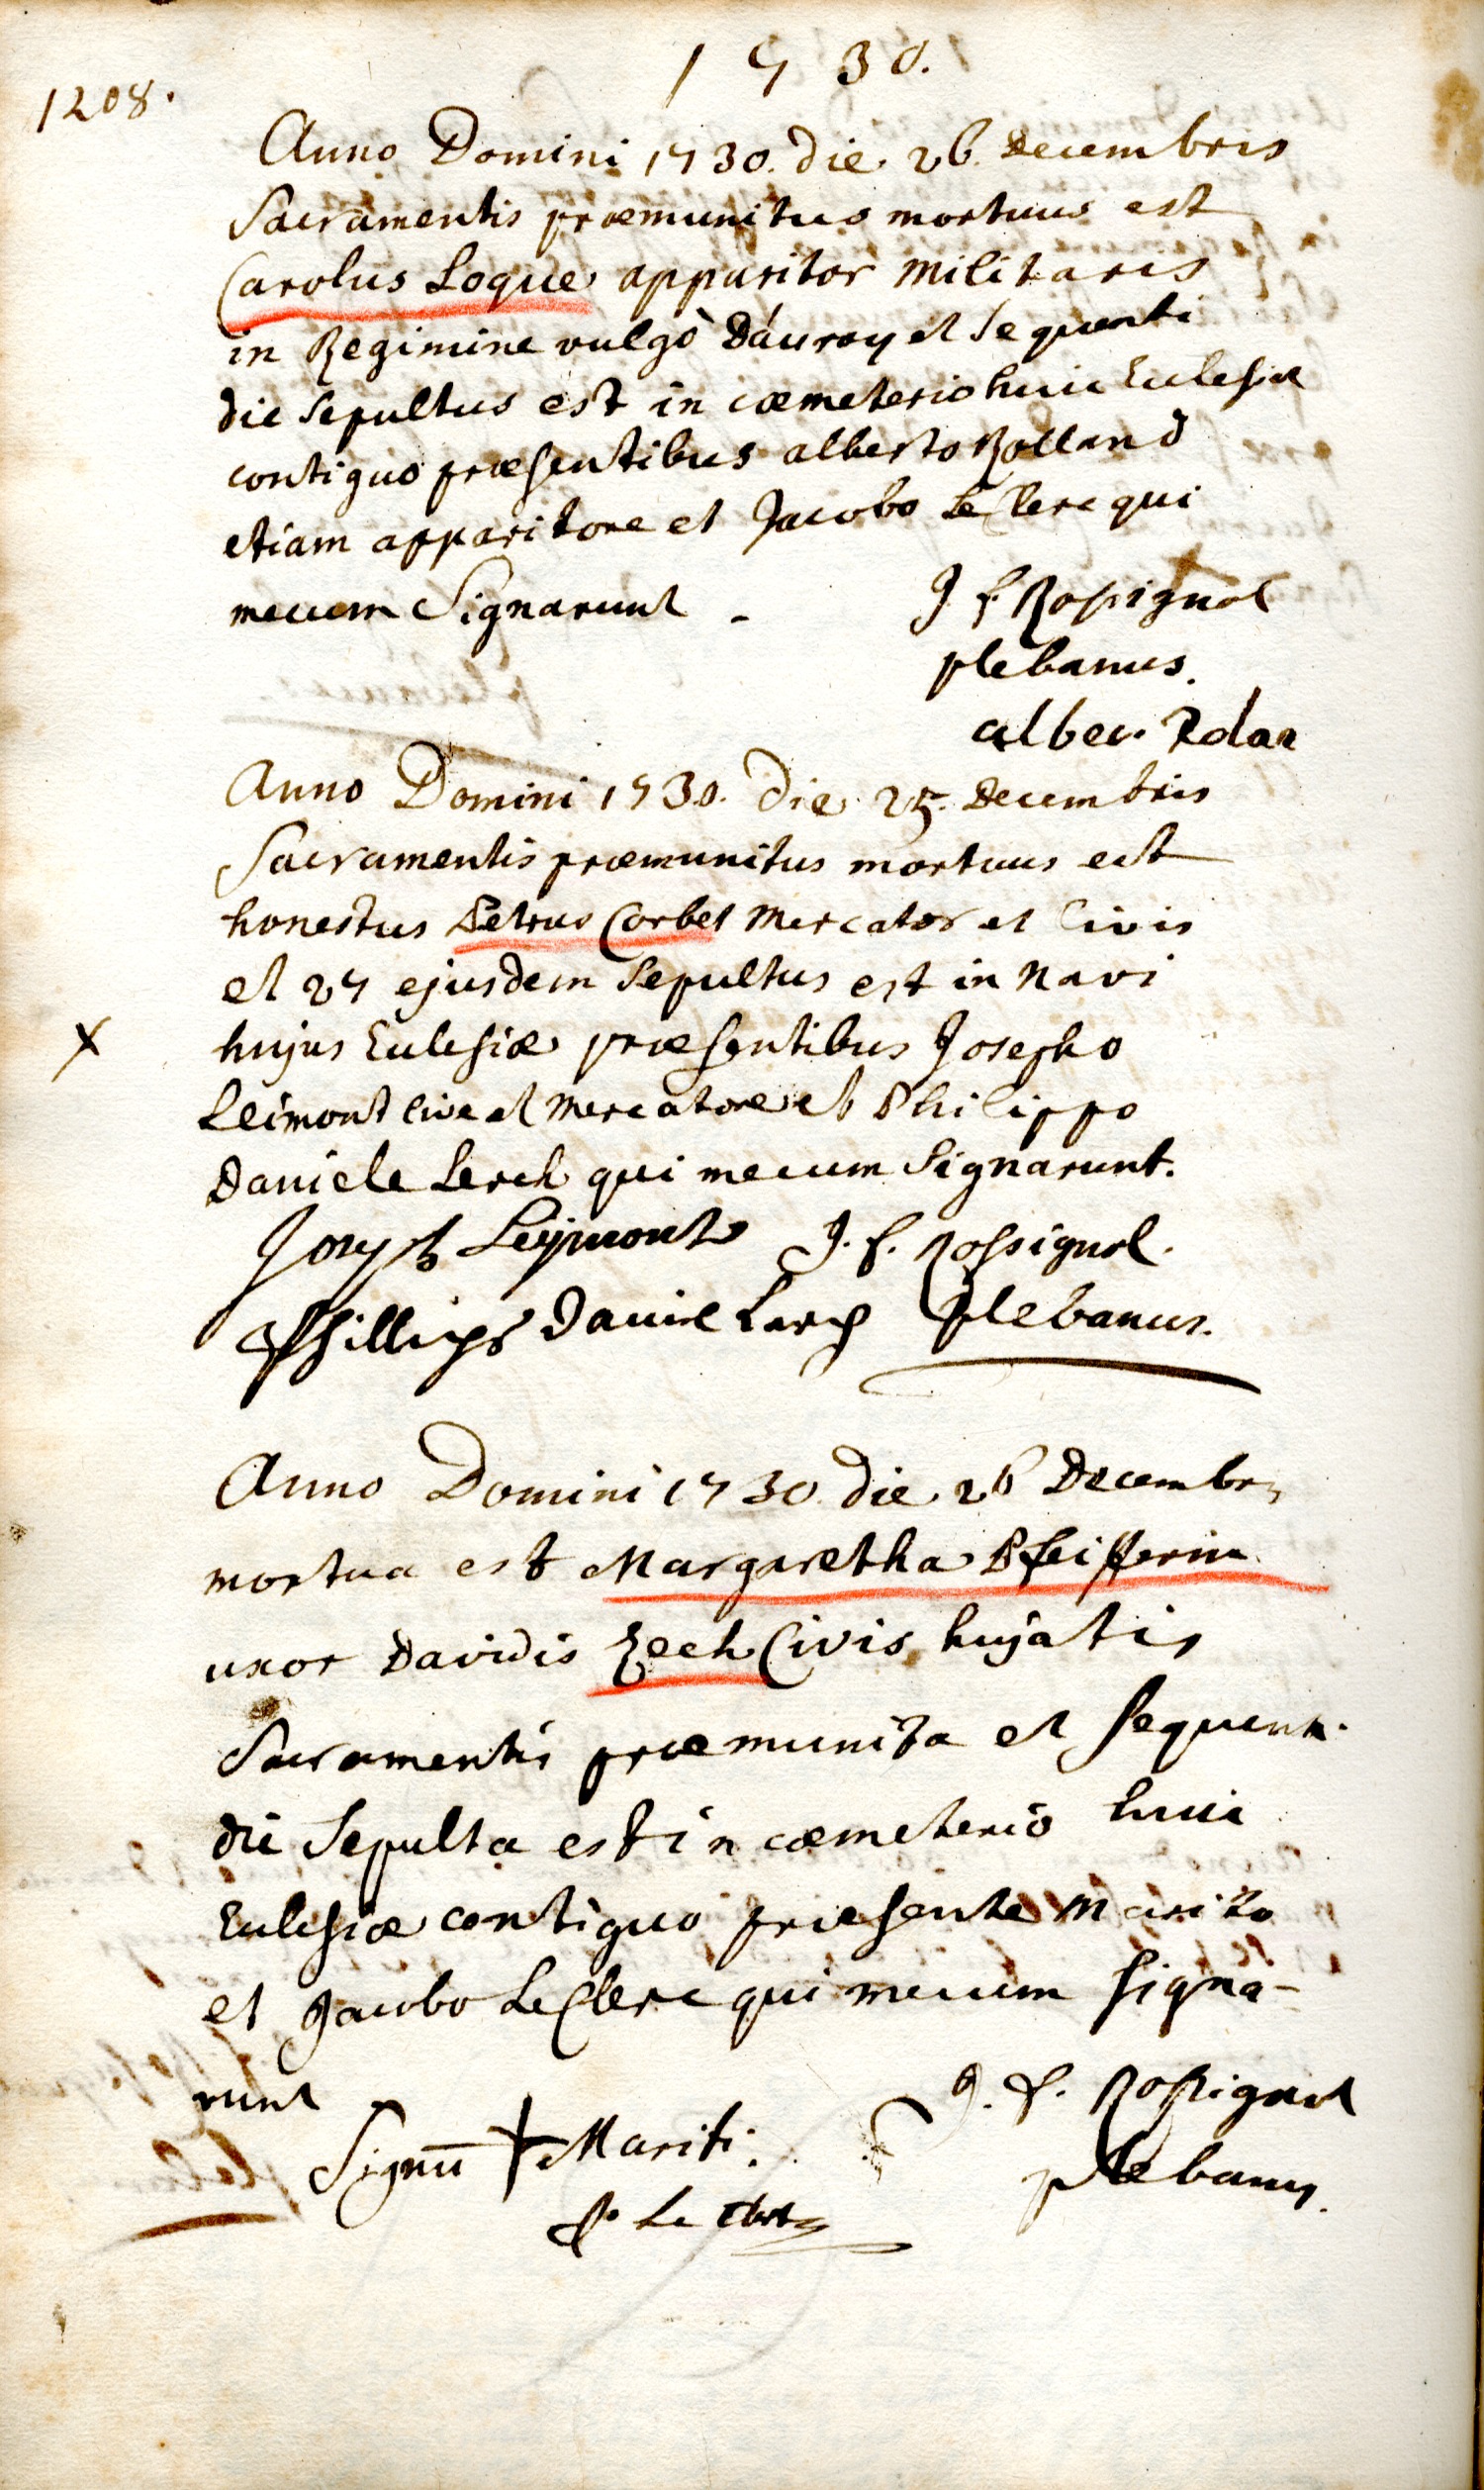 1730.
1208.
Anno Domini 1730. die 26. Decembris
Sacramentis præmunitus mortuus est
Carolus Loque apparitor militaris
in Regimine vulgò Dáuroy et sequenti
die sepultus est in cœmeterio huic Ecclesiæ
contiguo præsentibus alberto Rolland
etiam apparitore et Jacobo LeClerc qui
mecum Signarunt -
J f Rossignol
plebanus.
alber. Rolan
Anno Domini 1730. die 25. Decembris
Sacramentis præmunitus mortuus est
honestus Petrus Corbet mercator et Civis
et 27 ejusdem sepultus est in navi
x
hujus Ecclesiæ præsentibus Josepho
Leimont cive et mercatore et Philippo
Daniele Lerch qui mecum signarunt.
Joseph Leijmont J. f. Rossignol.
Phillips Daniel Larch plebanus.
Anno Domini 1730 die 26 Decembr
mortua est Margaretha Pfeifferin
uxor Davidis Zech Civis hujatis
Sacramentis præmunita et sequenti
die sepulta est in cœmeterio huic
Ecclesiæ contiguo præsente marito
et Jacobo LeClerc qui mecum signa-
runt
J. f. Rossignol
Signū + Mariti.
plebanus.
Le